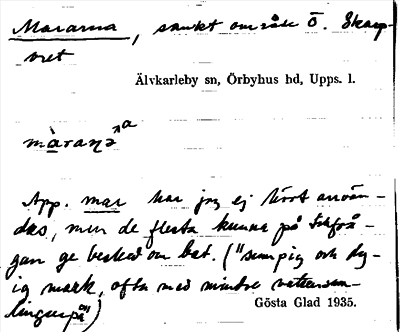 Mararna, sankt område Ö. Skarp-
vret
Älvkarleby sn, Örbyhus hd, Upps. l.
màranə ^a
App. mar har jag ej hört använ-
das, men de flesta kunna på förfrå-
gan ge besked om bet. ("sumpig och dy-
ig mark, ofta med mindre vattensam-
lingar på")
Gösta Glad 1935.